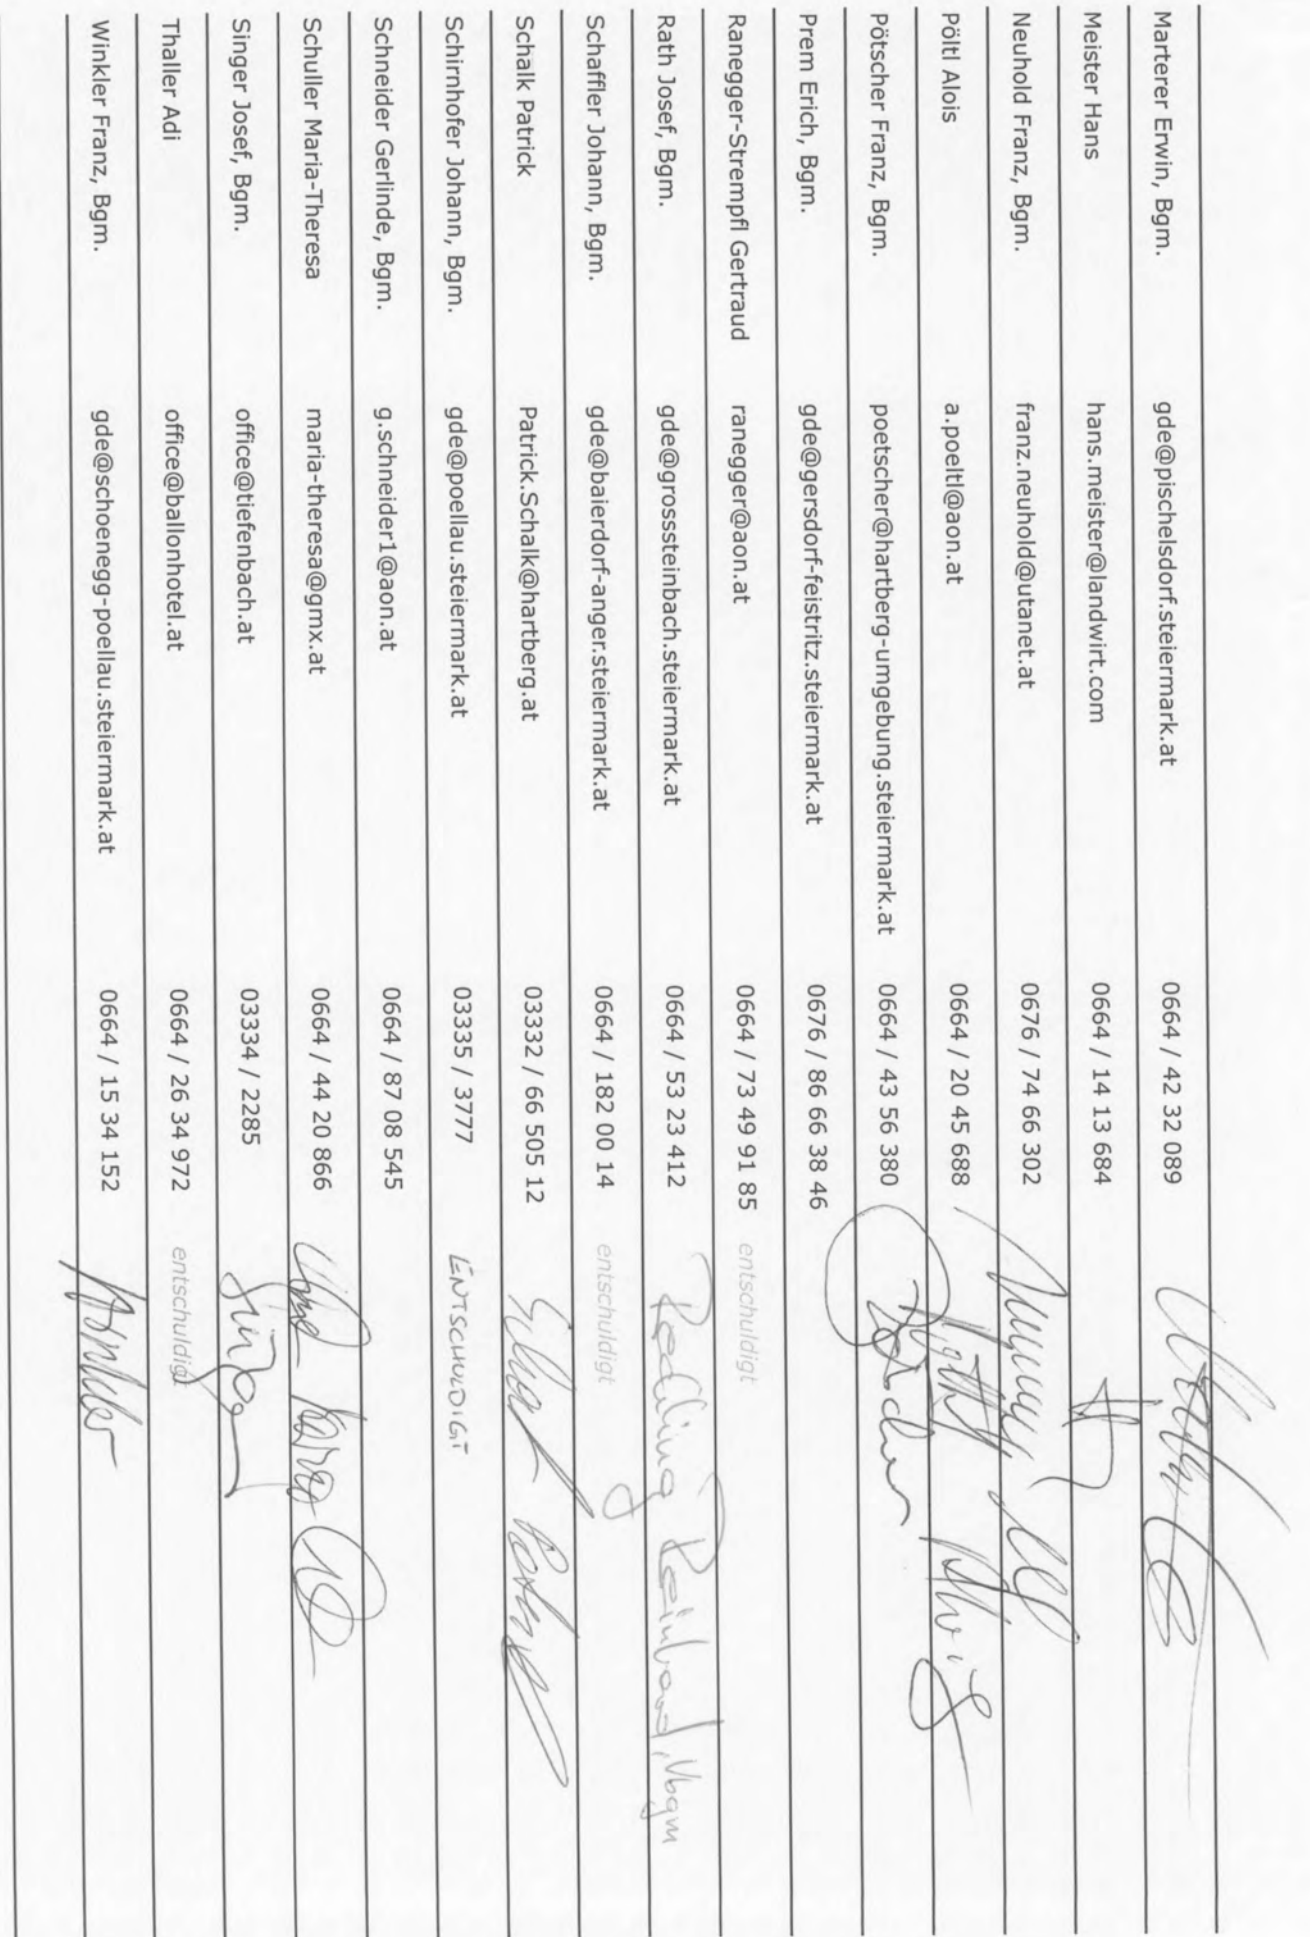 Marterer Erwin, Bgm. gde@pischelsdorf.steiermark.at 0664 / 42 32 089
Meister Hans hans.meister@landwirt.com 0664 / 14 13 684
Neuhold Franz, Bgm. franz.neuhold@utanet.at 0676 / 74 66 302
Pöltl Alois a.poeltl@aon.at 0664 / 20 45 688
Pötscher Franz, Bgm. poetscher@hartberg-umgebung.steiermark.at 0664 / 43 56 380
Prem Erich, Bgm. gde@gersdorf-feistritz.steiermark.at 0676 / 86 66 38 46
Ranegger-Strempfl Gertraud ranegger@aon.at 0664 / 73 49 91 85 entschuldigt
Rath Josef, Bgm. gde@grosssteinbach.steiermark.at 0664 / 53 23 412 Reinhard, Vbgm
Schaffler Johann, Bgm. gde@baierdorf-anger.steiermark.at 0664 / 182 00 14 entschuldigt
Schalk Patrick Patrick.Schalk@hartberg.at 03332 / 66 505 12
Schirnhofer Johann, Bgm. gde@poellau.steiermark.at 03335 / 3777 ENTSCHULDIGT
Schneider Gerlinde, Bgm. g.schneider1@aon.at 0664 / 87 08 545
Schuller Maria-Theresa maria-theresa@gmx.at 0664 / 44 20 866
Singer Josef, Bgm. office@tiefenbach.at 03334 / 2285
Thaller Adi office@ballonhotel.at 0664 / 26 34 972 entschuldigt
Winkler Franz, Bgm. gde@schoenegg-poellau.steiermark.at 0664 / 15 34 152 Winkler